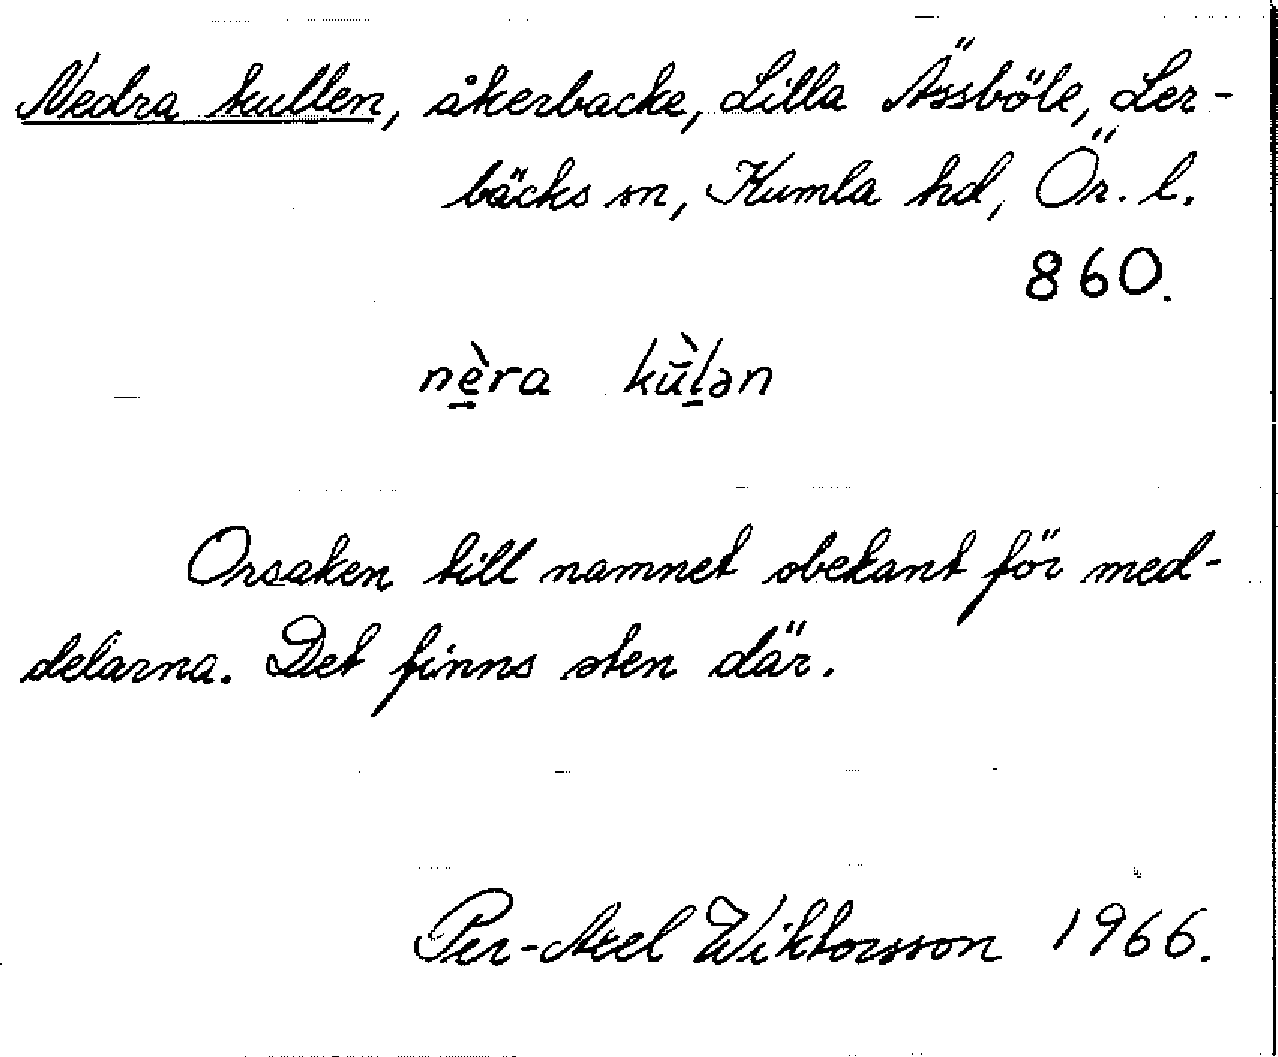 Nedra kullen, åkerbacke, Lilla Ässböle, Ler-
bäcks sn, Kumla hd, Ör. l.
860.
nè̱ra kŭ̀ḻən
Orsaken till namnet obekant för med-
delarna. Det finns sten där.
Per-Axel Wiktorsson 1966.